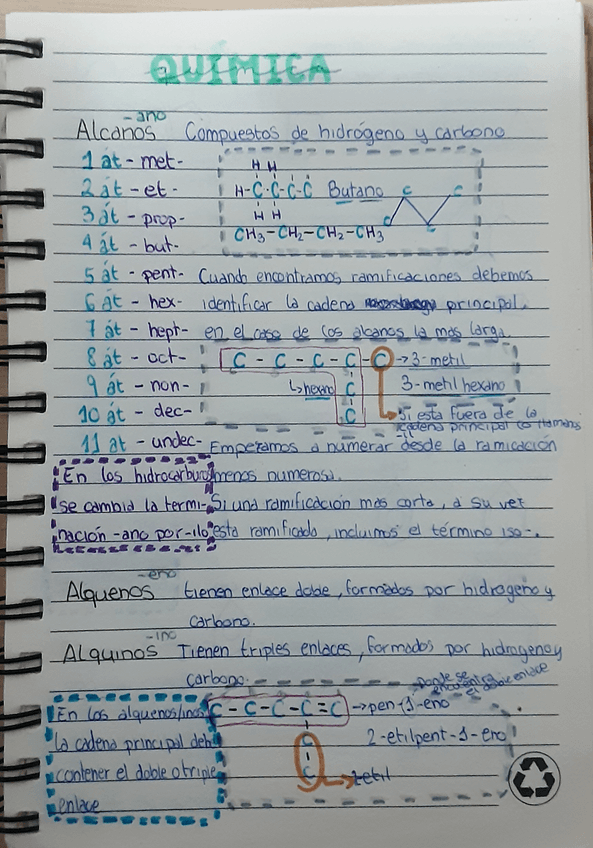 QUÍMICA
-ano
Alcanos Compuestos de hidrógeno y carbono
1 át - met-
2 át - et -
3 át - prop-
4 át - but-
5 át - pent-
6 át - hex-
7 át - hept-
8 át - oct-
9 át - non-
10 át - dec-
11 át - undec-
H H
H-C-C-C-C Butano
H H
C C C C
CH3-CH2-CH2-CH3
Cuando encontramos ramificaciones debemos
identificar la cadena principal.
en el caso de los alcanos la más larga.
C - C - C - C - C → 3-metil
↳ hexano C 3-metil hexano
C
Si esta fuera de la
cadena principal lo llamamos
-il
Empezamos a numerar desde la ramicación
menos numerosa.
Si una ramificación más corta, a su vez
esta ramificado, incluimos el término iso-.
En los hidrocarburos
se cambia la termi-
nación -ano por -ilo
-eno
Alquenos tienen enlace doble, formados por hidrogeno y
carbono.
-ino
Alquinos Tienen triples enlaces, formados por hidrogeno y
carbono.
Donde se
encuentra
el doble enlace
C - C - C - C = C → pen-1-eno
C 2-etilpent-1-eno
C → etil
En los alquenos/inos
la cadena principal debe
contener el doble o triple
enlace